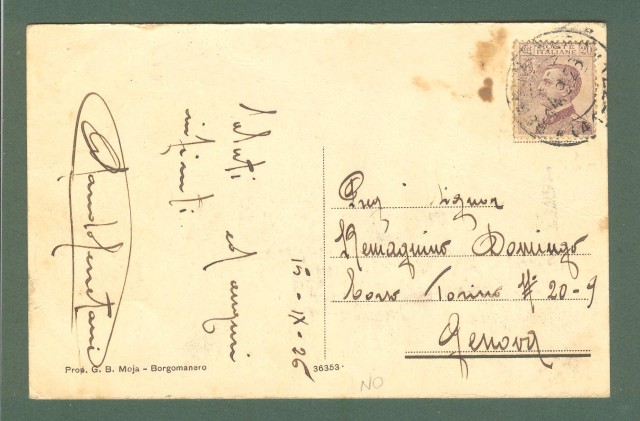 Saluti
infiniti
ed auguri
15-IX-26
POSTE ITALIANE
Preg. Signor
Domingo
Corso Torino N: 20-9
Genova
Prop. G. B. Moja - Borgomanero
36353
NO